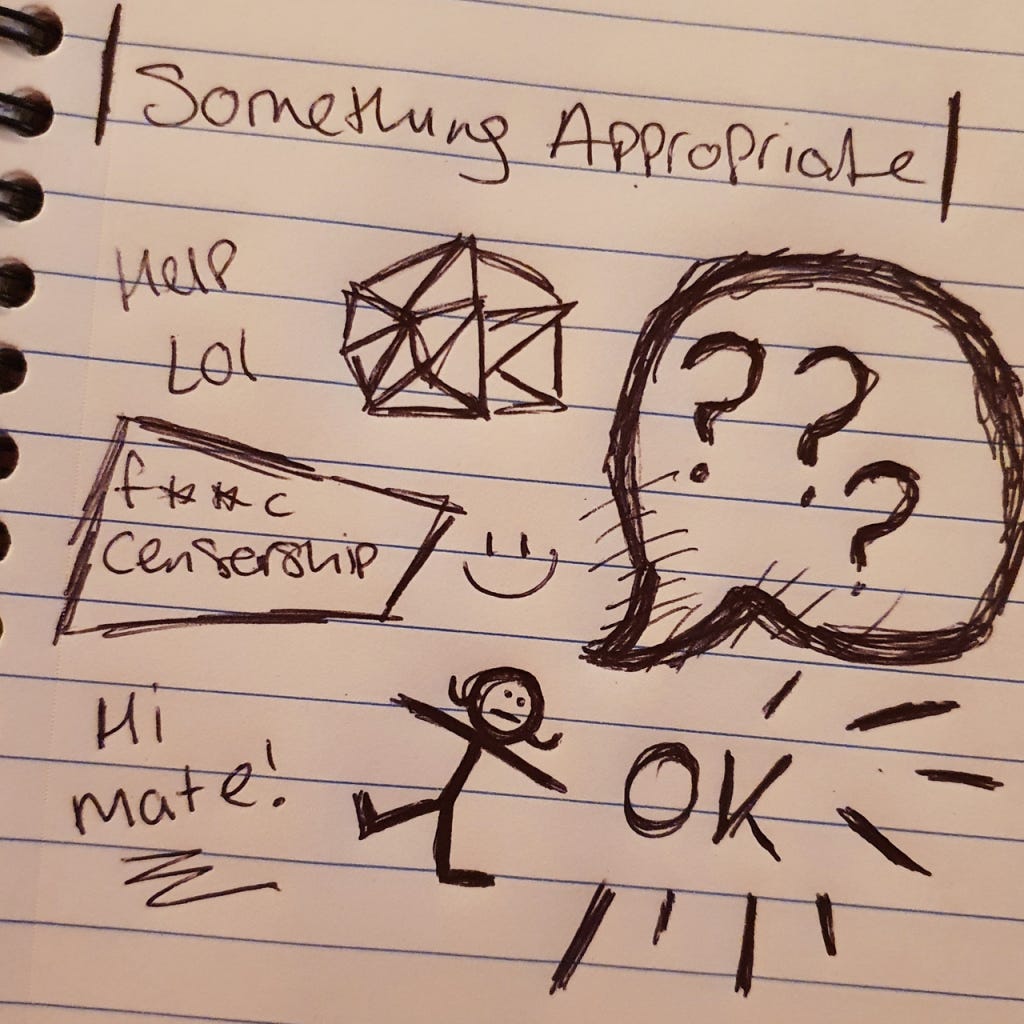 Something Appropriate
Help
Lol
? ? ?
f***c
censership
Hi
mate!
OK